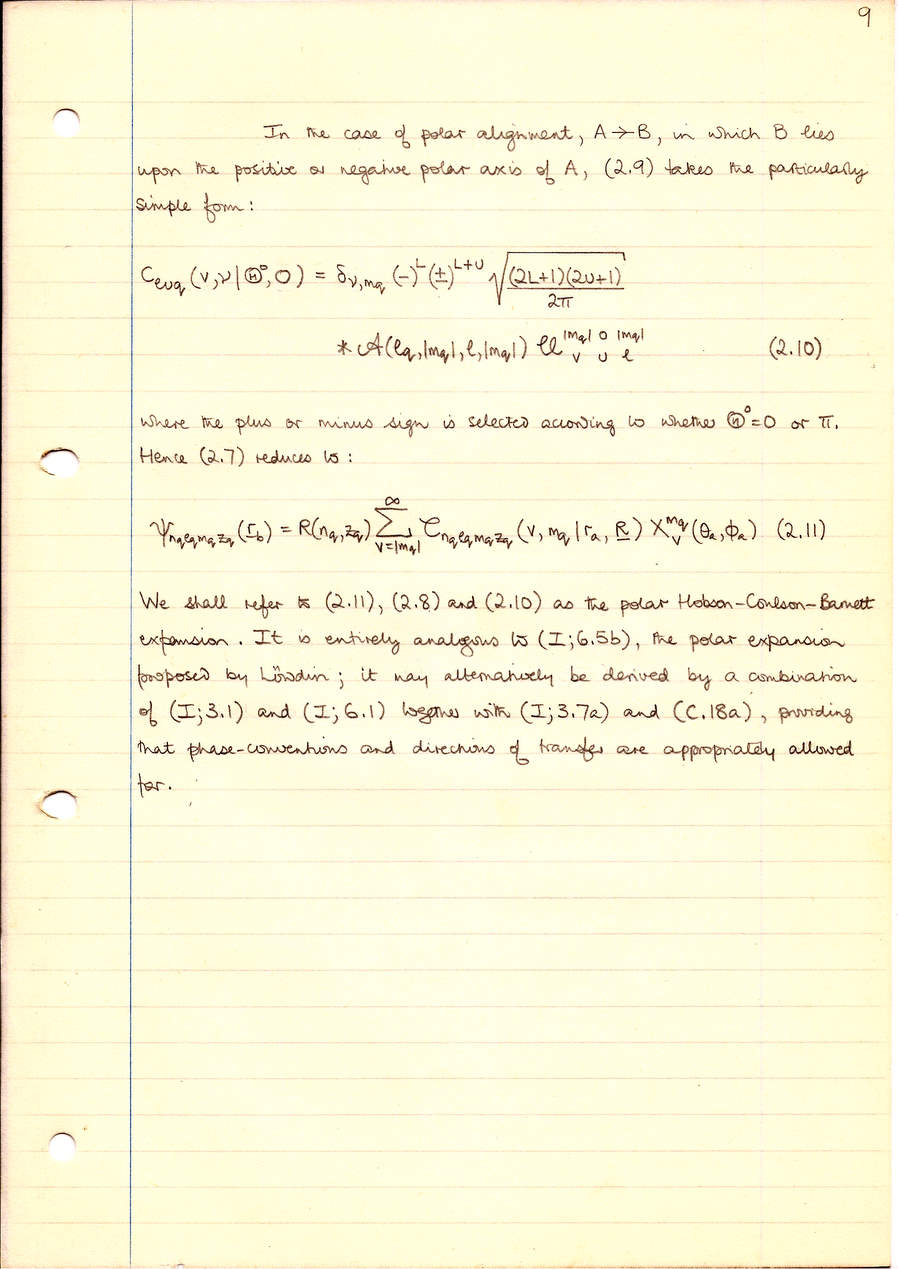 9
In the case of polar alignment, A→B, in which B lies
upon the positive or negative polar axis of A, (2.9) takes the particularly
simple form:
C_{ℓuq}(v,ν|Θ°,0) = δ_{ν,m_q} (−)^L (±)^{L+U} √((2L+1)(2U+1)/2π)
* 𝒜(ℓ_q,|m_q|,ℓ,|m_q|) 𝒰^{|m_q| 0 |m_q|}_{v u ℓ} (2.10)
where the plus or minus sign is selected according to whether Θ°=0 or π.
Hence (2.7) reduces to:
ψ_{n_qℓ_qm_qz_q}(r_b) = R(n_q,z_q) ∑_{v=|m_q|}^∞ 𝒞_{n_qℓ_qm_qz_q}(v,m_q|r_a,R) X_v^{m_q}(θ_a,ϕ_a) (2.11)
We shall refer to (2.11), (2.8) and (2.10) as the polar Hobson-Coulson-Barnett
expansion. It is entirely analogous to (I;6.5b), the polar expansion
proposed by Löwdin; it may alternatively be derived by a combination
of (I;3.1) and (I;6.1) together with (I;3.7a) and (C.18a), providing
that phase-conventions and directions of transfer are appropriately allowed
for.